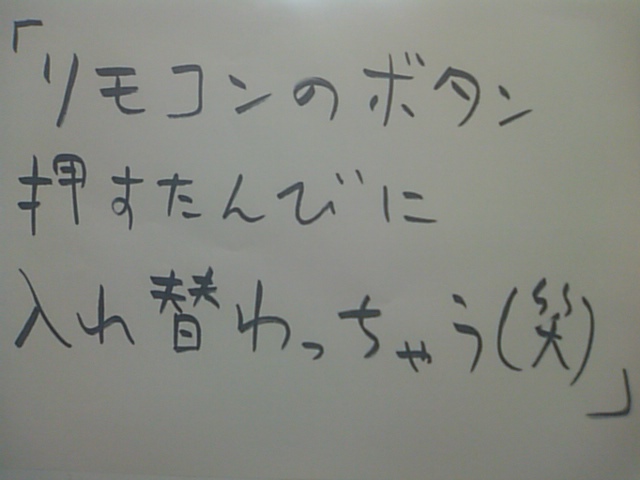 「リモコンのボタン
押すたんびに
入れ替わっちゃう(笑)」